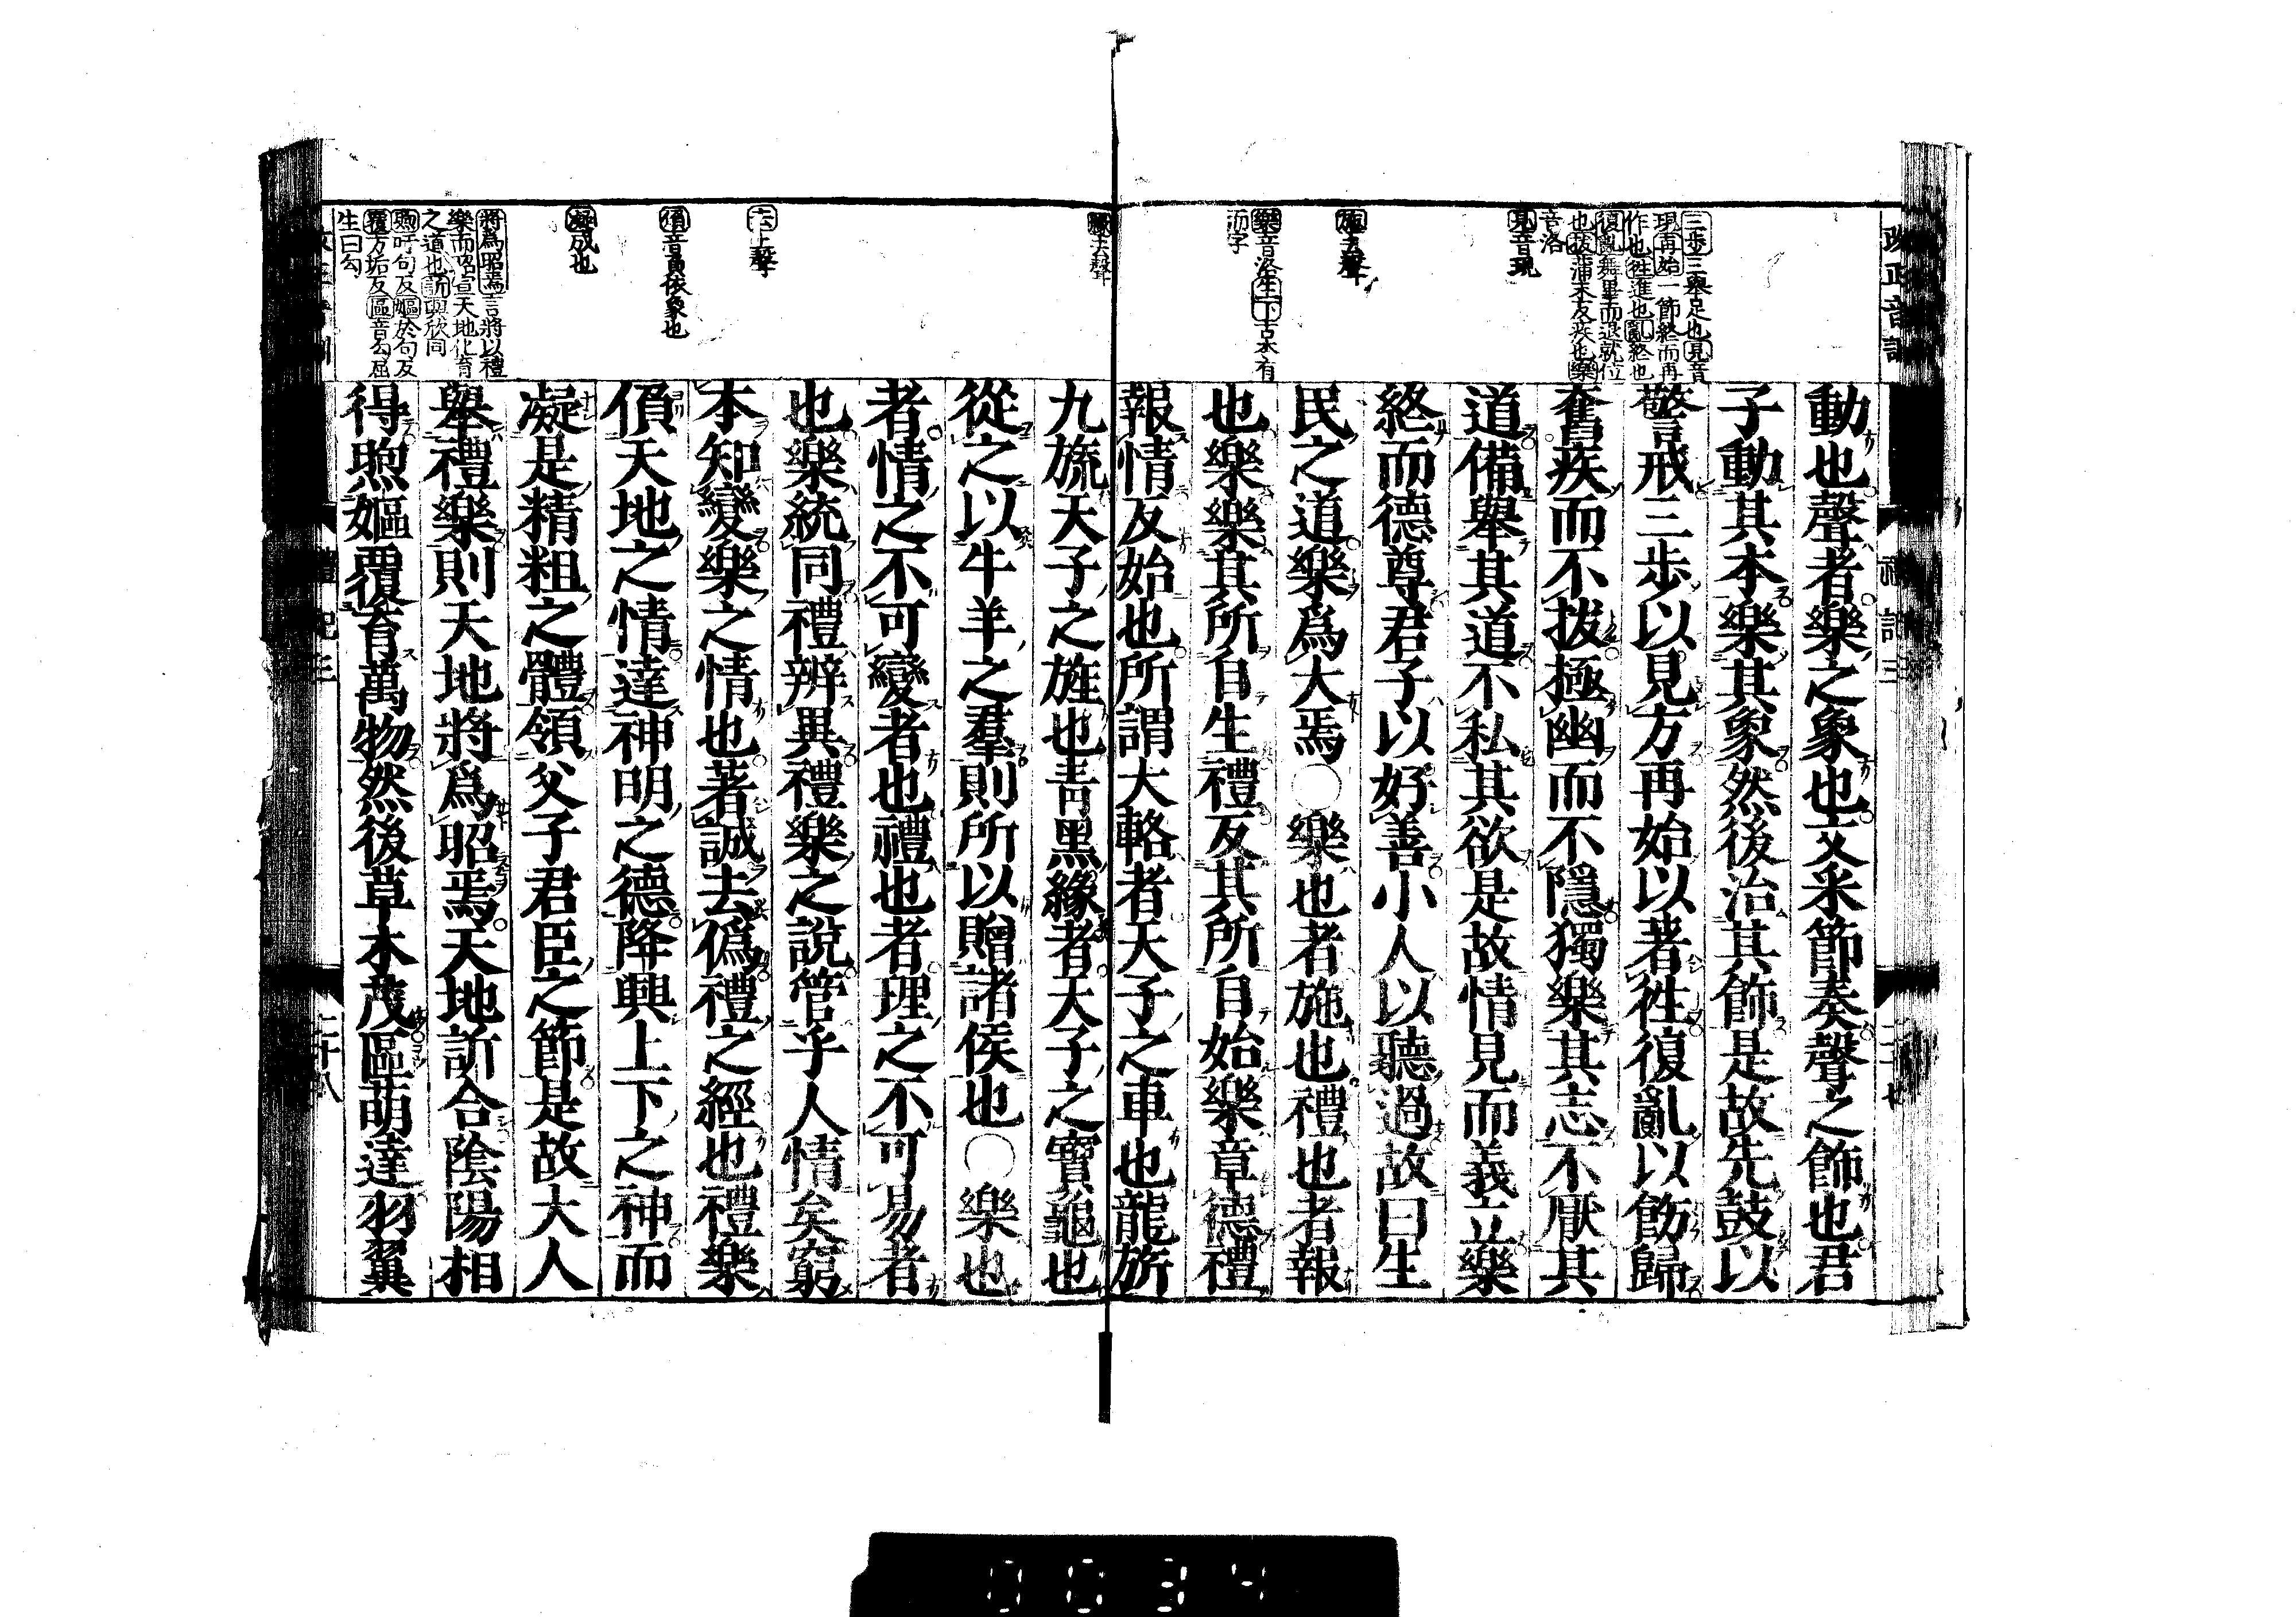 改正音訓
禮記三
二十七
三歩三舉足也見音
現再始一節終而再
作也徃進也亂終也
復亂舞畢而退就位
也拔蒲末反疾也樂
音洛
見音現
施去聲
樂音洛生下古本有
而字
緣去聲
動也聲者樂之象也文采節奏聲之飾也君
子動其本樂其象然後治其飾是故先鼓以
警戒三歩以見方再始以著徃復亂以飭歸
奮疾而不拔極幽而不隱獨樂其志不厭其
道備舉其道不私其欲是故情見而義立樂
終而德尊君子以好善小人以聽過故曰生
民之道樂爲大焉○樂也者施也禮也者報
也樂樂其所自生禮反其所自始樂章德禮
報情反始也所謂大輅者天子之車也龍旂
九旒天子之旌也靑黑緣者天子之寶龜也
從之以牛羊之羣則所以贈諸侯也○樂也
者情之不可變者也禮也者理之不可易者
也樂統同禮辨異禮樂之說管乎人情矣窮
本知變樂之情也著誠去僞禮之經也禮樂
偩天地之情達神明之德降興上下之神而
凝是精粗之體領父子君臣之節是故大人
舉禮樂則天地將爲昭焉天地訢合陰陽相
得煦嫗覆育萬物然後草木茂區萌達羽翼
去上聲
偩音負依象也
凝成也
將爲昭焉言將以禮
樂而昭宣天地化育
之道也訢與欣同
煦吁句反嫗於句反
覆方垢反區音勾屈
生曰勾
禮記三
二十八
0034